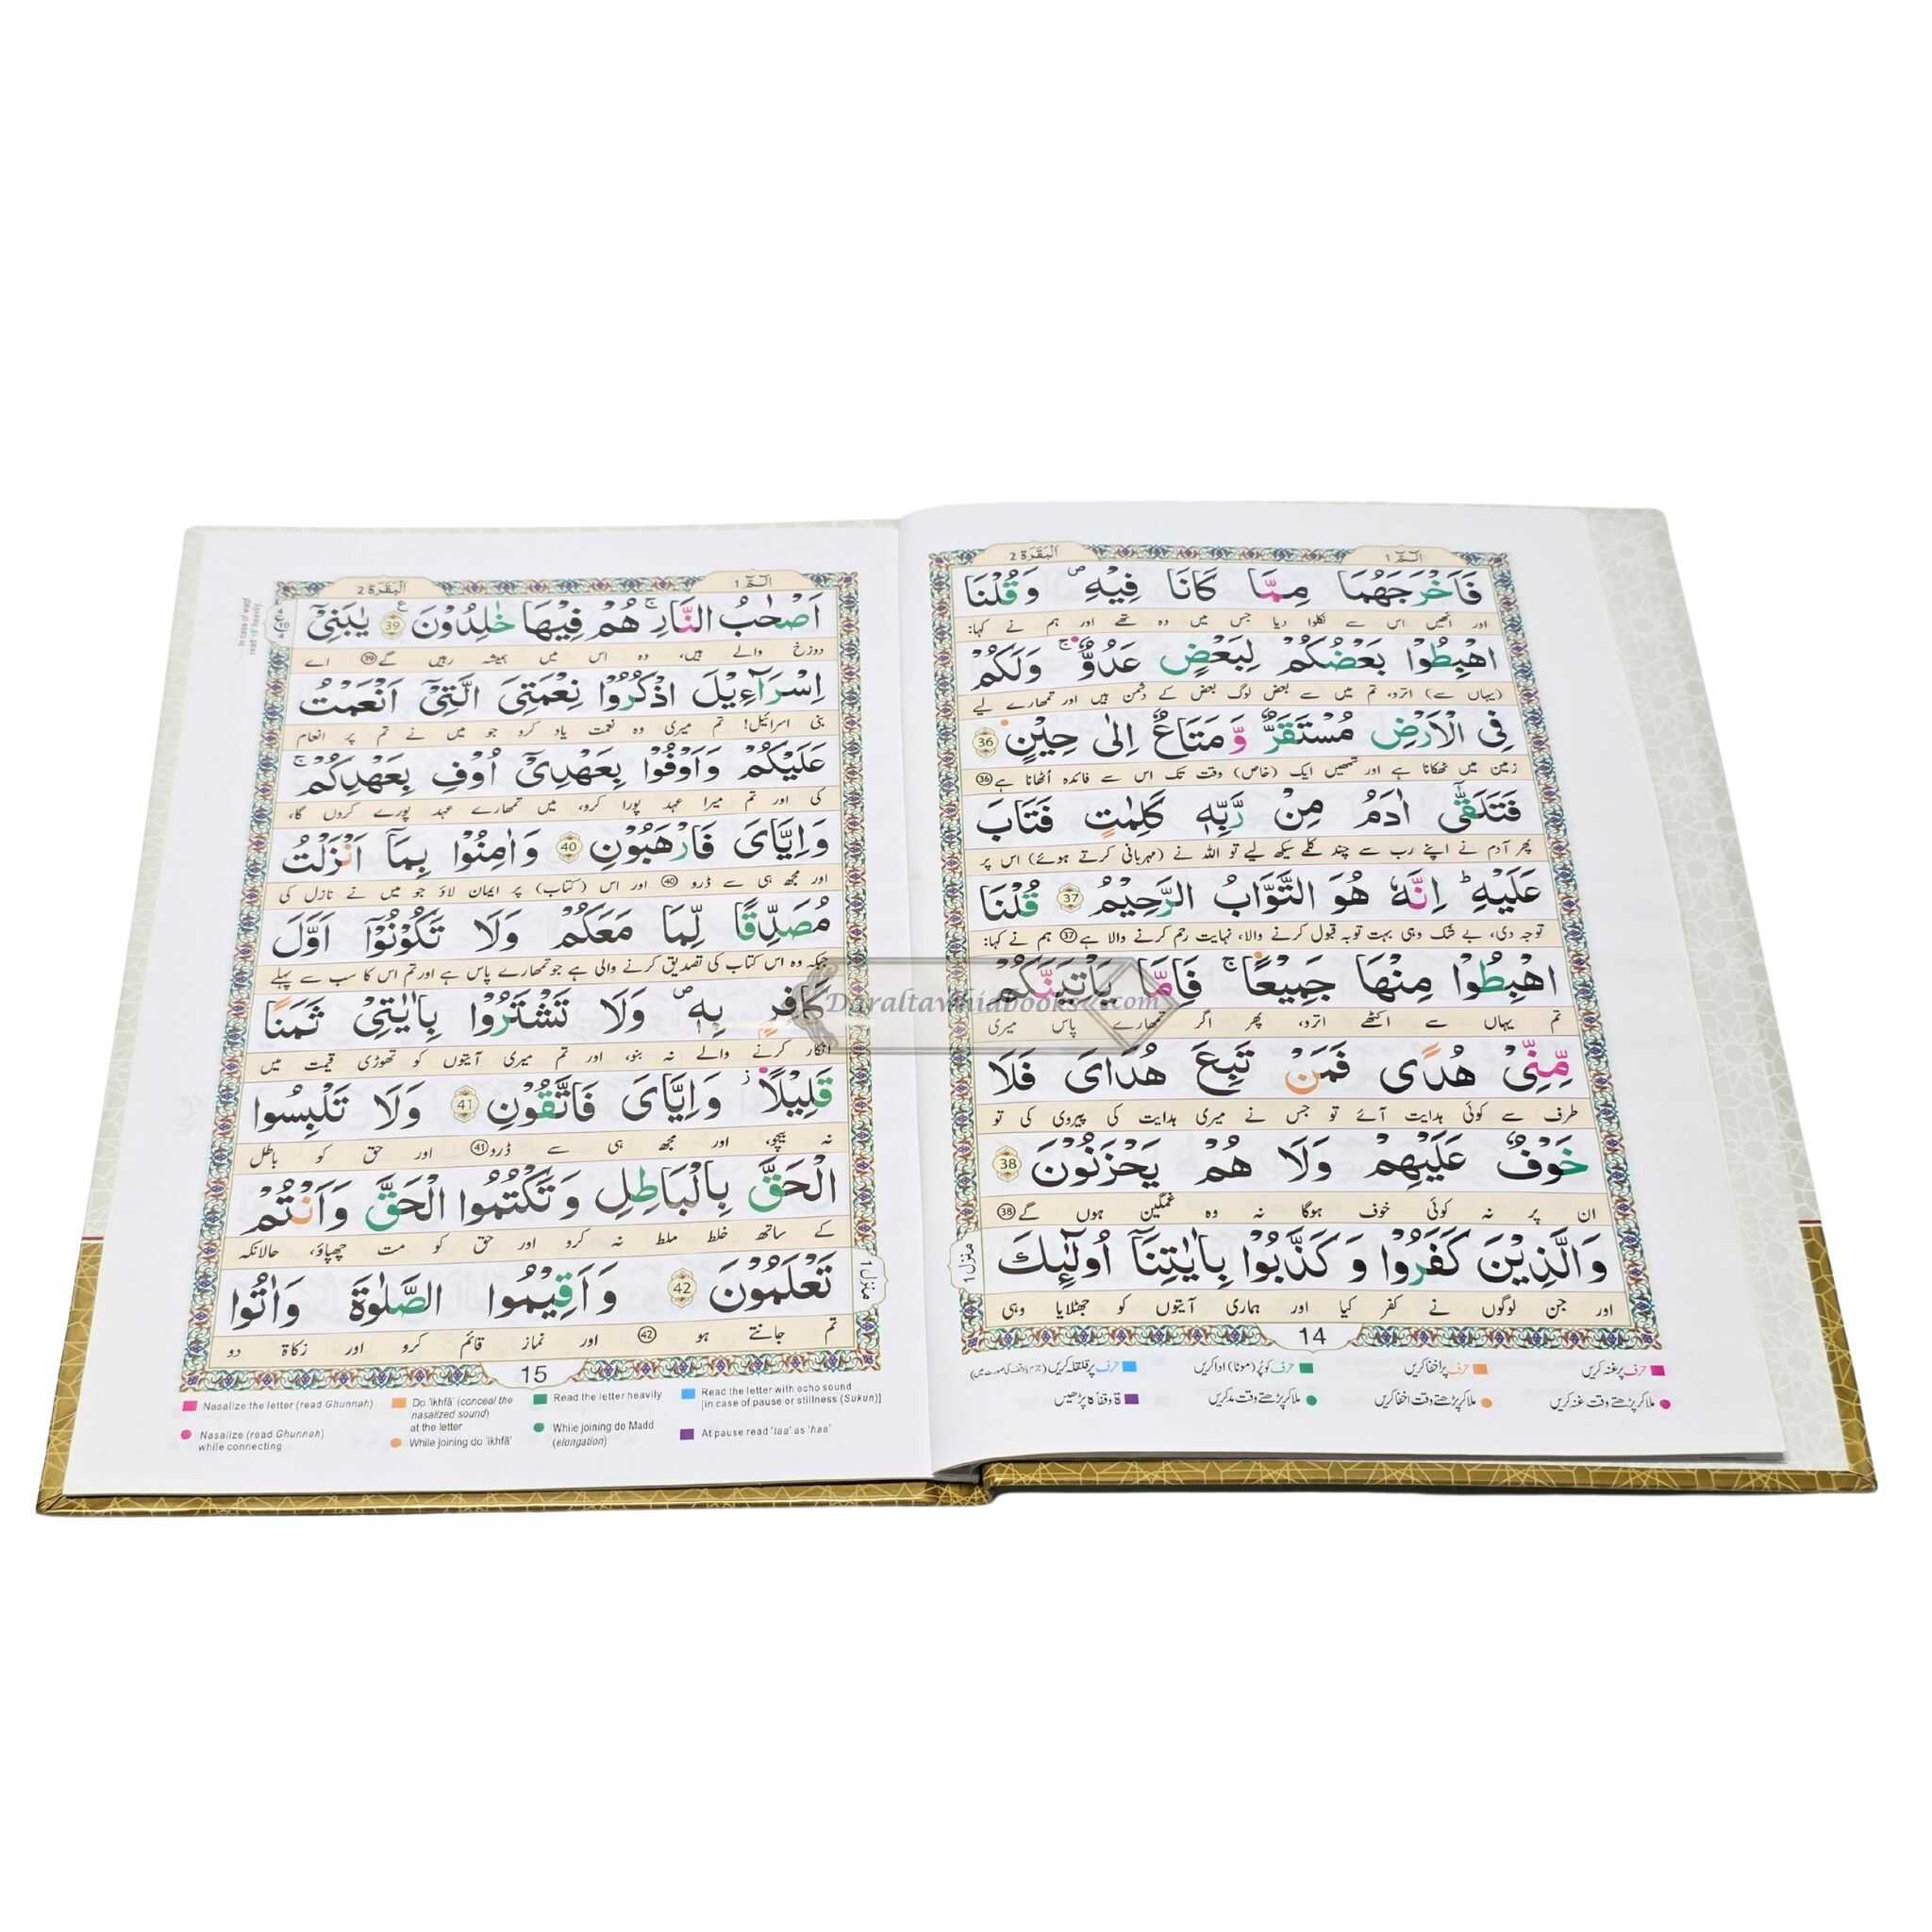 البقرة 2
الٓمّٓ 1
فَاَخْرَجَهُمَا مِمَّا كَانَا فِيْهِ ۪ وَقُلْنَا
اور انھیں اس سے نکلوا دیا جس میں وہ تھے اور ہم نے کہا:
اهْبِطُوْا بَعْضُكُمْ لِبَعْضٍ عَدُوٌّ ۚ وَلَكُمْ
(یہاں سے) اترو، تم میں سے بعض لوگ بعض کے دشمن ہیں اور تمھارے لیے
فِي الْاَرْضِ مُسْتَقَرٌّ وَّمَتَاعٌ اِلٰى حِيْنٍ 36
زمین میں ٹھکانا ہے اور تمھیں ایک (خاص) وقت تک اس سے فائدہ اُٹھانا ہے 36
فَتَلَقّٰٓى اٰدَمُ مِنْ رَّبِّهٖ كَلِمٰتٍ فَتَابَ
پھر آدم نے اپنے رب سے چند کلمے سیکھ لیے تو اللہ نے (مہربانی کرتے ہوئے) اس پر
عَلَيْهِ ؕ اِنَّهٗ هُوَ التَّوَّابُ الرَّحِيْمُ 37 قُلْنَا
توجہ دی، بے شک وہی بہت توبہ قبول کرنے والا، نہایت رحم کرنے والا ہے 37 ہم نے کہا:
اهْبِطُوْا مِنْهَا جَمِيْعًا ۚ فَاِمَّا يَاْتِيَنَّكُمْ
تم یہاں سے اکٹھے اترو، پھر اگر تمھارے پاس میری
مِّنِّيْ هُدًى فَمَنْ تَبِعَ هُدَايَ فَلَا
طرف سے کوئی ہدایت آئے تو جس نے میری ہدایت کی پیروی کی تو
خَوْفٌ عَلَيْهِمْ وَلَا هُمْ يَحْزَنُوْنَ 38
ان پر نہ کوئی خوف ہوگا نہ وہ غمگین ہوں گے 38
وَالَّذِيْنَ كَفَرُوْا وَكَذَّبُوْا بِاٰيٰتِنَآ اُولٰٓئِكَ
اور جن لوگوں نے کفر کیا اور ہماری آیتوں کو جھٹلایا وہی
منزل 1
14
حرف پر غنہ کریں
حرف پر اخفا کریں
حرف کو پُر (موٹا) ادا کریں
حرف پر قلقلہ کریں
ملا کر پڑھتے وقت غنہ کریں
ملا کر پڑھتے وقت اخفا کریں
ملا کر پڑھتے وقت مد کریں
ة وقفًا ہ پڑھیں
البقرة 2
الٓمّٓ 1
اَصْحٰبُ النَّارِ ۚ هُمْ فِيْهَا خٰلِدُوْنَ 39 يٰبَنِيْٓ
دوزخ والے ہیں، وہ اس میں ہمیشہ رہیں گے 39 اے
اِسْرَآءِيْلَ اذْكُرُوْا نِعْمَتِيَ الَّتِيْٓ اَنْعَمْتُ
بنی اسرائیل! تم میری وہ نعمت یاد کرو جو میں نے تم پر انعام
عَلَيْكُمْ وَاَوْفُوْا بِعَهْدِيْٓ اُوْفِ بِعَهْدِكُمْ ۚ
کی اور تم میرا عہد پورا کرو، میں تمھارے عہد پورے کروں گا،
وَاِيَّايَ فَارْهَبُوْنِ 40 وَاٰمِنُوْا بِمَآ اَنْزَلْتُ
اور مجھ ہی سے ڈرو 40 اور اس (کتاب) پر ایمان لاؤ جو میں نے نازل کی
مُصَدِّقًا لِّمَا مَعَكُمْ وَلَا تَكُوْنُوْٓا اَوَّلَ
جبکہ وہ اس کتاب کی تصدیق کرنے والی ہے جو تمھارے پاس ہے اور تم اس کا سب سے پہلے
كَافِرٍۭ بِهٖ ۪ وَلَا تَشْتَرُوْا بِاٰيٰتِيْ ثَمَنًا
انکار کرنے والے نہ بنو، اور تم میری آیتوں کو تھوڑی قیمت میں
قَلِيْلًا ؗ وَاِيَّايَ فَاتَّقُوْنِ 41 وَلَا تَلْبِسُوا
نہ بیچو، اور مجھ ہی سے ڈرو 41 اور حق کو باطل
الْحَقَّ بِالْبَاطِلِ وَتَكْتُمُوا الْحَقَّ وَاَنْتُمْ
کے ساتھ خلط ملط نہ کرو اور حق کو مت چھپاؤ، حالانکہ
تَعْلَمُوْنَ 42 وَاَقِيْمُوا الصَّلٰوةَ وَاٰتُوا
تم جانتے ہو 42 اور نماز قائم کرو اور زکاۃ دو
منزل 1
15
Nasalize the letter (read Ghunnah)
Do 'ikhfā' (conceal the nasalized sound) at the letter
Read the letter heavily
Read the letter with echo sound [in case of pause or stillness (Sukun)]
Nasalize (read Ghunnah) while connecting
While joining do 'ikhfā'
While joining do Madd (elongation)
At pause read 'taa' as 'haa'
Daraltawhidbooks.com